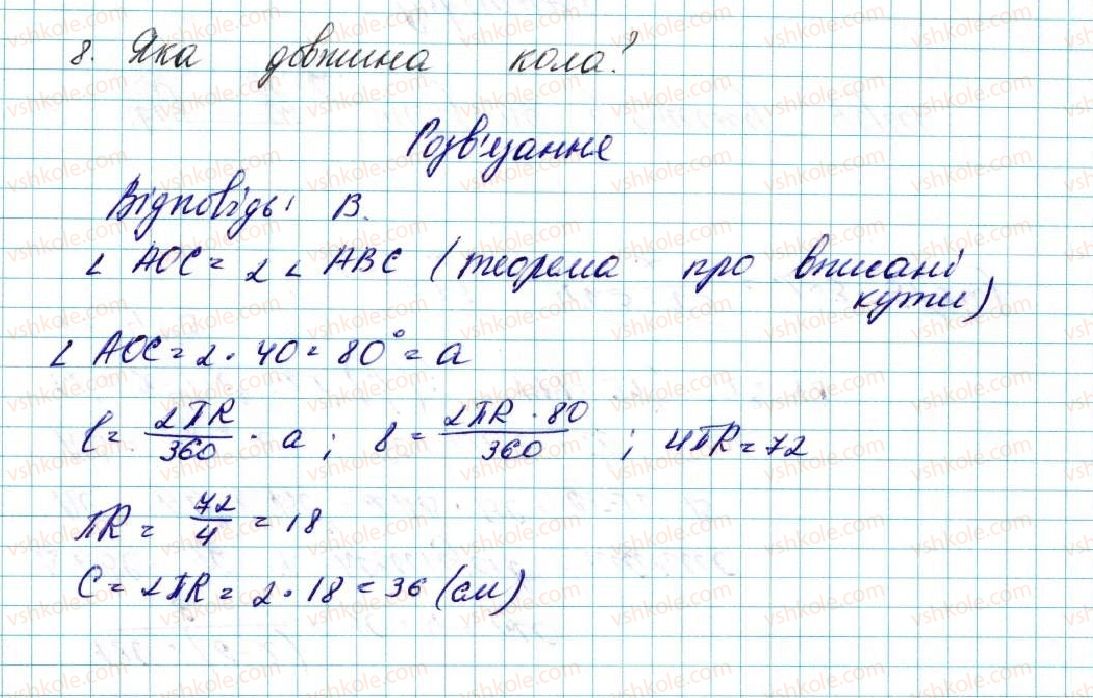 8. Яка довжина кола?
Розв'язання
Відповідь: В.
∠ AOC = 2 ∠ ABC (теорема про вписані
кути)
∠ AOC = 2 · 40 = 80° = a
l = 2πR/360 · a ; 8 = 2πR · 80/360 ; 4πR = 72
πR = 72/4 = 18
C = 2πR = 2 · 18 = 36 (см)